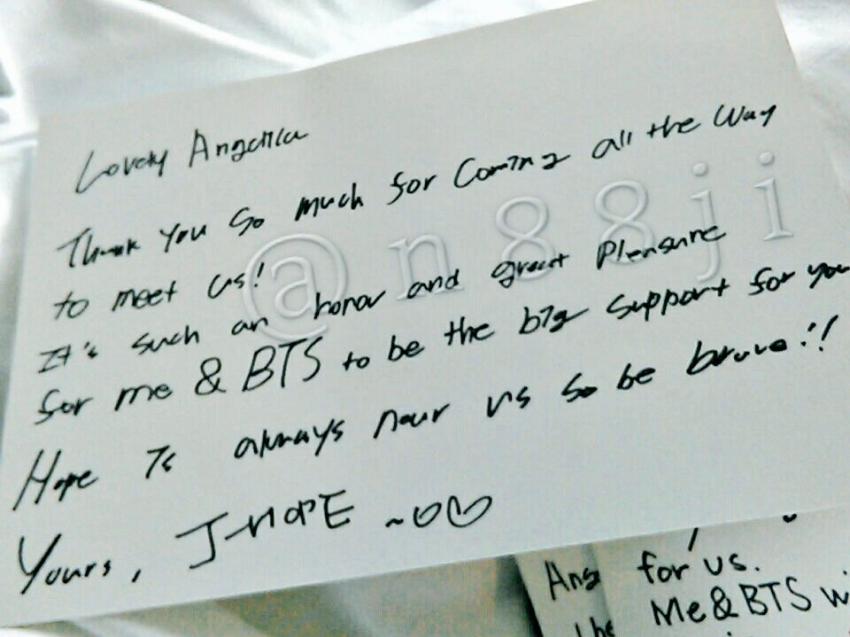 Lovely Angelica
Thank you so much for coming all the way
to meet us!
It's such an honor and great pleasure
for me & BTS to be the big support for you
Hope is always near us so be brave!!
Yours, J-HOPE ~♡♡
@n88ji
for us.
Ang
Me&BTS wi
the